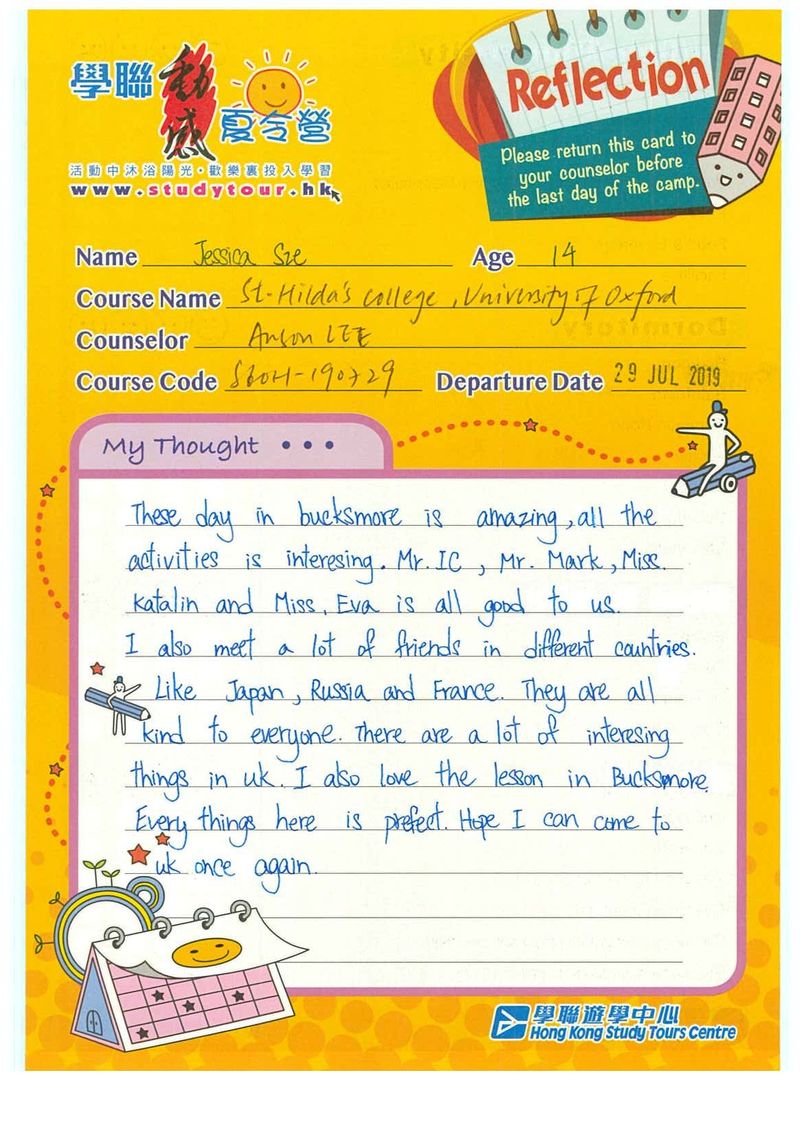 學聯動感夏令營
活動中沐浴陽光・歡樂裏投入學習
www.studytour.hk
Reflection
Please return this card to
your counselor before
the last day of the camp.
Name Jessica Sze Age 14
Course Name St-Hilda's college, University of Oxford
Counselor Anson LEE
Course Code SBOH-190729 Departure Date 29 JUL 2019
My Thought • • •
These day in bucksmore is amazing, all the
activities is interesing. Mr. IC, Mr. Mark, Miss.
Katalin and Miss. Eva is all good to us.
I also meet a lot of friends in different countries.
Like Japan, Russia and France. They are all
kind to everyone. There are a lot of interesing
things in uk. I also love the lesson in Bucksmore.
Every things here is prefect. Hope I can come to
uk once again.
學聯遊學中心
Hong Kong Study Tours Centre